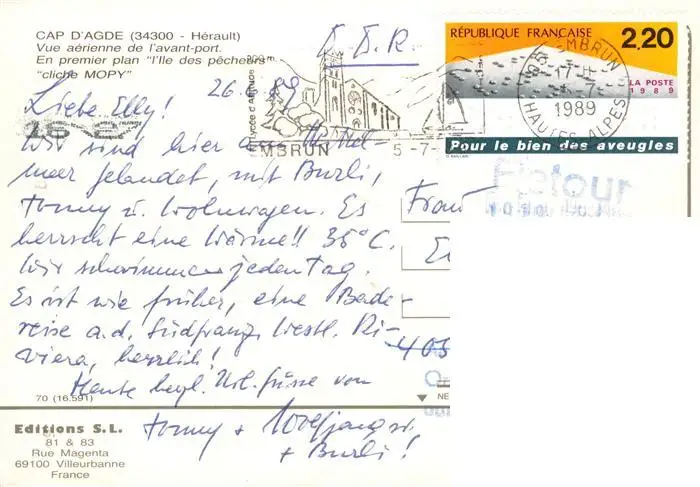 CAP D'AGDE (34300 - Hérault)
Vue aérienne de l'avant-port.
En premier plan "l'Ile des pêcheurs"
"cliché MOPY"
D.D.R.
RÉPUBLIQUE FRANÇAISE
2,20
LA POSTE
1989
Pour le bien des aveugles
EMBRUN
17 H
1989
HAUTES-ALPES
EMBRUN
5 -7-
Retour
26.6.89
Liebe Elly!
Wir sind hier am Mittel-
meer gelandet, mit Burli,
Tonny u. Wohnwagen. Es
herrscht eine Wärme!! 36°C.
Wir schwimmen jeden Tag.
Es ist wie früher, eine Bade-
reise a.d. Südfranz. westl. Ri-
viera, herrlich!
Heute herzl. Url. grüsse von
Tonny + Wolfgang
+ Burli!
Frau
405
70 (16.591)
Editions S.L.
81 & 83
Rue Magenta
69100 Villeurbanne
France
NE